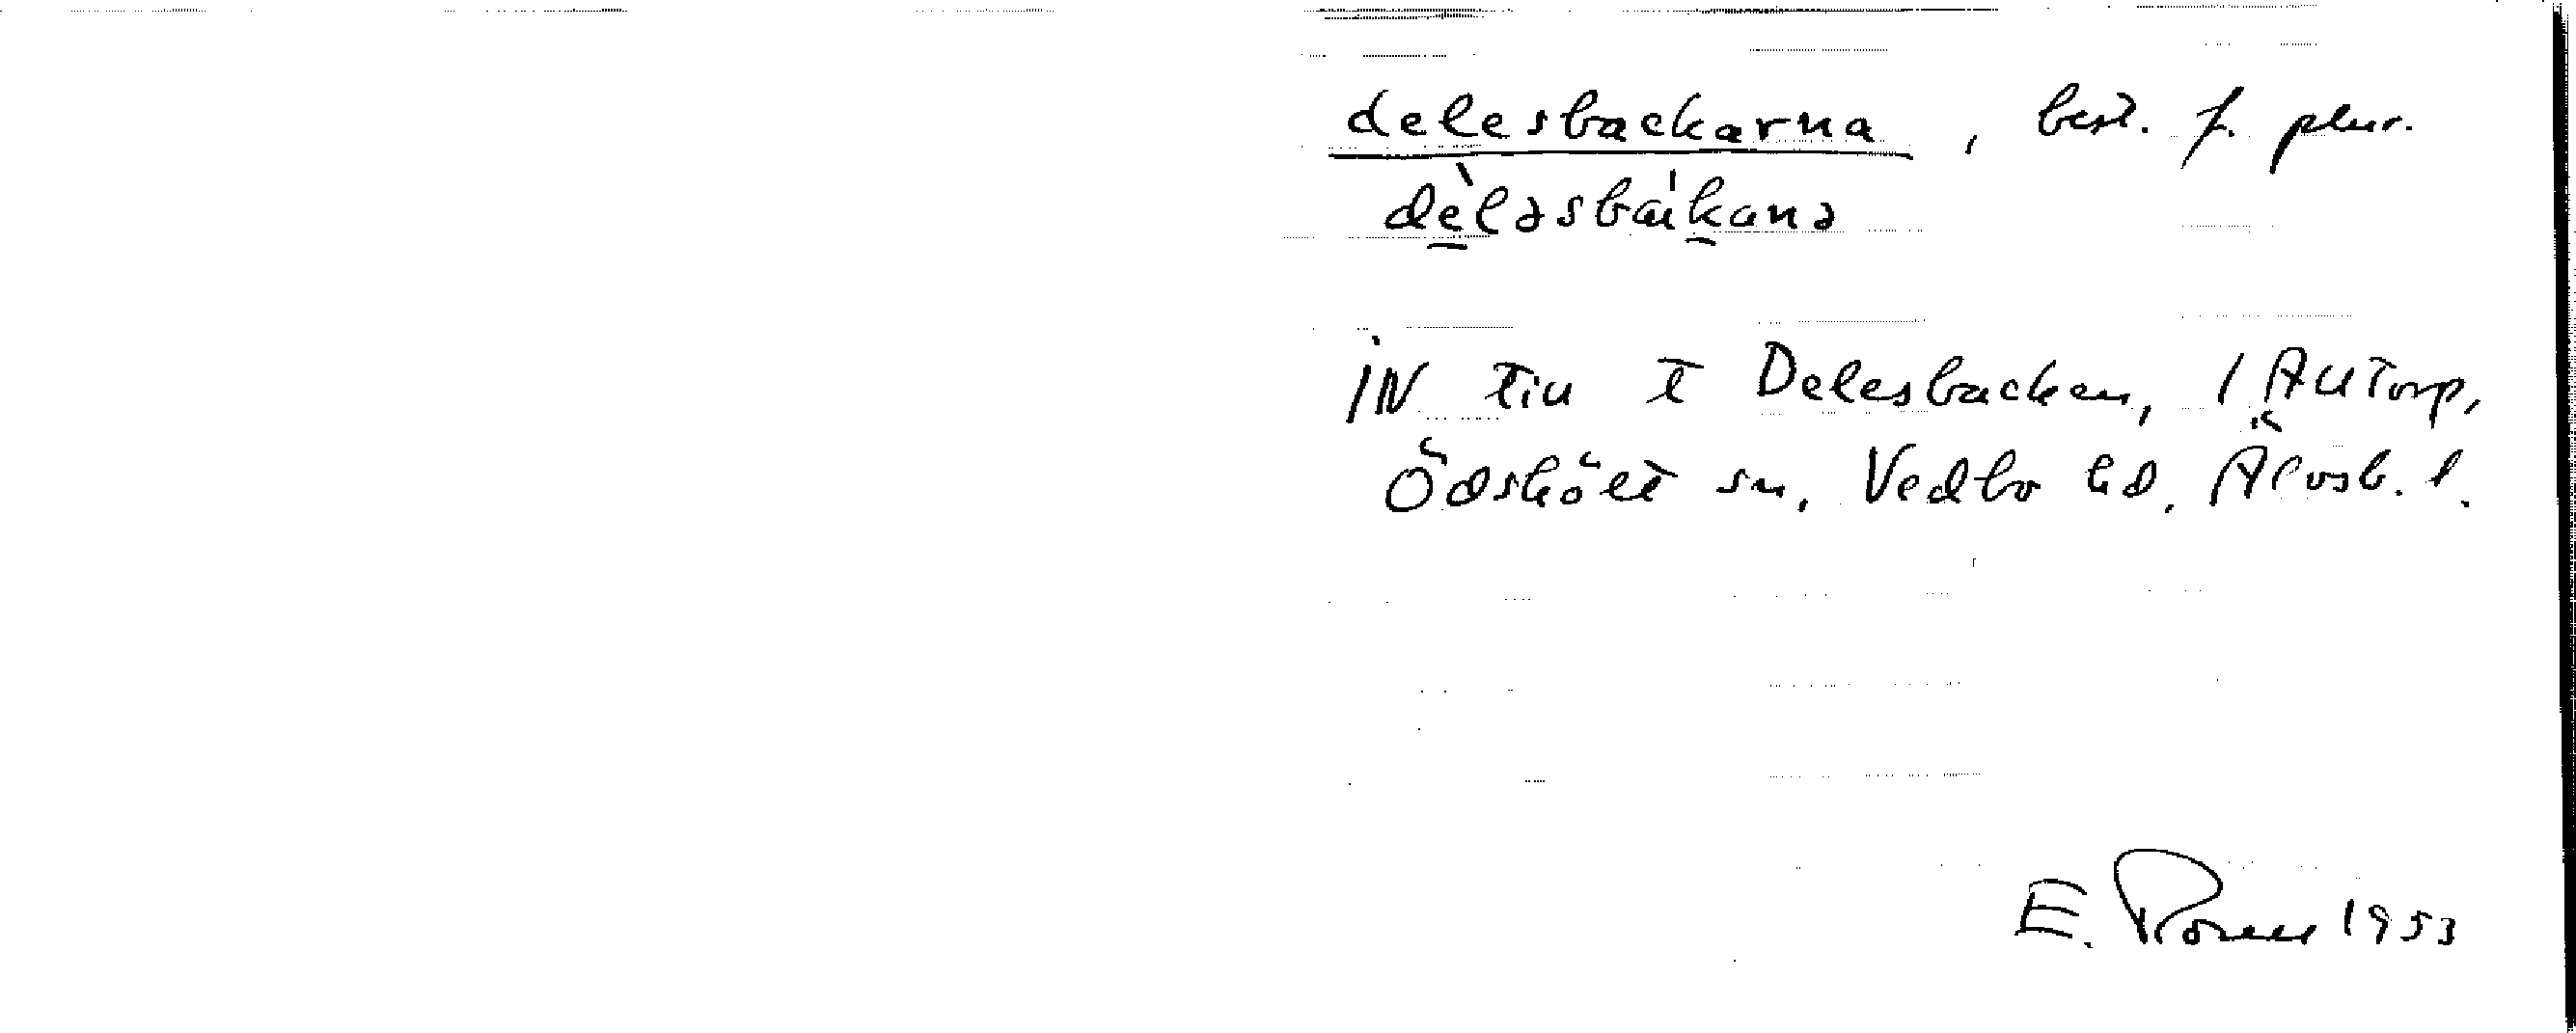 delesbackarna, best. f. plur.
dèləsbàkanə
IN till t Delesbacken, 1 Alltorp,
Ödskölt sn, Vedbo hd, Älvsb. l.
E. Rosell 1953